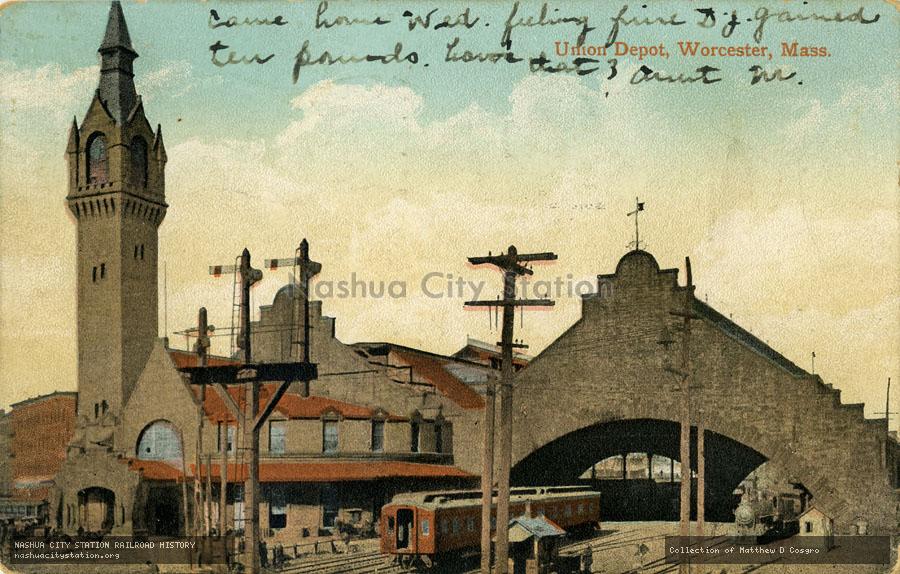 came home Wed. feeling fine D.J. gained
Union Depot, Worcester, Mass.
ten pounds. Love
Aunt M.
Nashua City Station
NASHUA CITY STATION RAILROAD HISTORY
nashuacitystation.org
Collection of Matthew D Cosgro